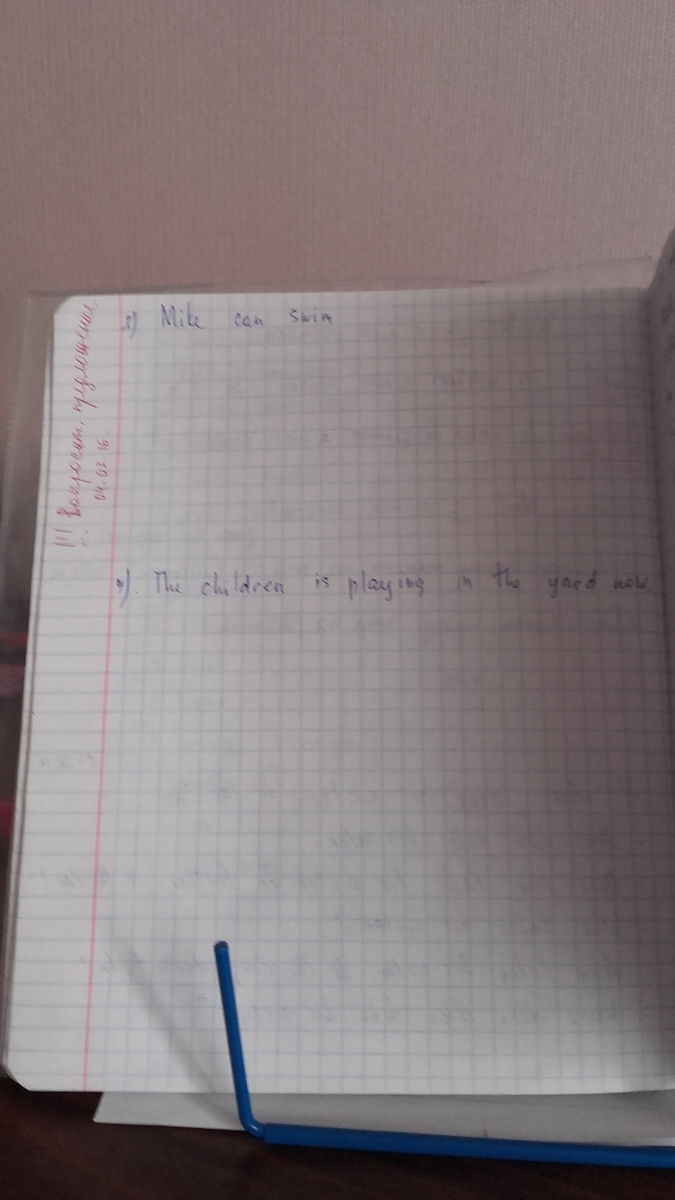 !!! Вопросит. предложения.
04.03.16.
3). Mike can swim
4). The children is playing in the yard now.